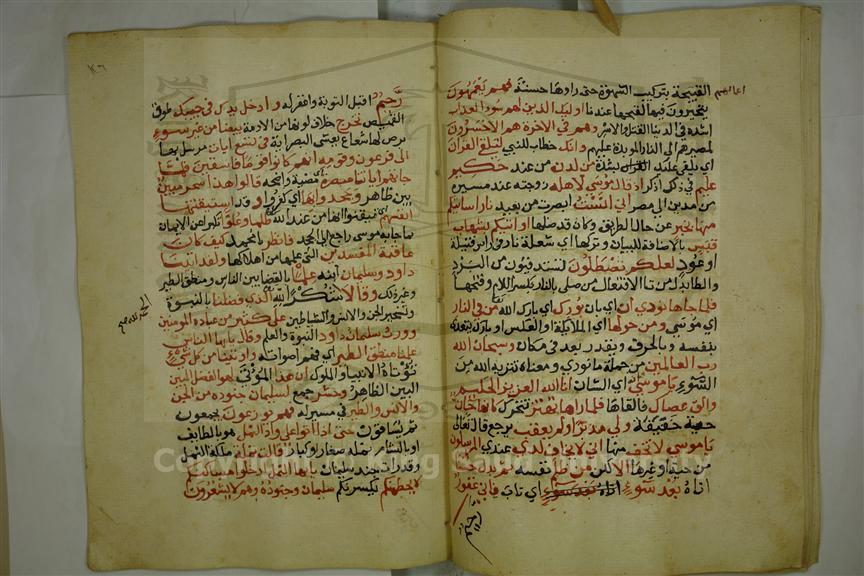 القبيحة بتركيب الشهوة حتى راوها حسنة فهم يعمهون
يتحيرون فيها لقبحها عندنا اوليك الذين لهم سوء العذاب
اشده في الدنيا القتل والاسر وهم في الاخرة هم الاخسرون
لمصيرهم الى النار الموبدة عليهم وانك خطاب للنبي لتلقى القران
اي يلقى عليك بشدة من لدن من عند حكيم
عليم في ذلك اذكر اذ قال موسى لاهله زوجته عند مسيره
من مدين الى مصر اني انست ابصرت من بعيد نارا ساتيكم
منها بخبر عن حال الطريق وكان قد ضلها او اتيكم بشهاب
قبس بالاضافة للبيان وتركها اي شعلة نار في راس فتيلة
او عود لعلكم تصطلون تستدفيون من البرد
والطا بدل من تا الافتعال من صلي بالنار بكسر اللام وفتحها
فلما جاها نودي ان اي بان بورك اي بارك الله من في النار
اي موسى ومن حولها اي الملايكة او العكس وبارك يتعدى
بنفسه وبالحرف ويقدر بعد في مكان وسبحان الله
رب العالمين من جملة ما نودي ومعناه تنزيه الله من
السوء يا موسى انه اي الشان انا الله العزيز الحكيم
والق عصاك فالقاها فلما راها تهتز تتحرك كانها جان
حية خفيفة ولى مدبرا ولم يعقب يرجع قال تعالى
يا موسى لا تخف منها اني لا يخاف لدي عندي المرسلون
من حية وغيرها الا لكن من ظلم نفسه ثم بدل حسنا
اتاه بعد سوء اي تاب فاني غفور
رحيم اقبل التوبة واغفر له وادخل يدك في جيبك طوق
القميص تخرج خلاف لونها من الادمة بيضا من غير سوء
برص لها شعاع يغشى البصر اية في تسع ايات مرسل بها
الى فرعون وقومه انهم كانوا قوما فاسقين فلما
جاتهم اياتنا مبصرة مضية واضحة قالوا هذا سحر مبين
بين ظاهر وجحدوا بها اي لم يقروا وقد استيقنتها
انفسهم اي تيقنوا انها من عند الله ظلما وعلوا تكبرا عن الايمان
بما جا به موسى راجع الى الجحد فانظر يا محمد كيف كان
عاقبة المفسدين التي علمتها من اهلاكها ولقد اتينا
داود وسليمان ابنه علما بالقضا بين الناس ومنطق الطير
وغير ذلك وقالا شكرا لله الذي فضلنا بالنبوة
وتسخير الجن والانس والشياطين على كثير من عباده المومنين
وورث سليمان داود النبوة والعلم وقال يا ايها الناس
علمنا منطق الطير اي فهم اصواته واوتينا من كل شيء
تؤتاه الانبيا والملوك ان هذا المؤتى لهو الفضل المبين
البين الظاهر وحشر جمع لسليمان جنوده من الجن
والانس والطير في مسير له فهم يوزعون يجمعون
ثم يساقون حتى اذا اتوا على واد النمل هو بالطايف
او بالشام نمله صغار او كبار قالت نملة ملكة النمل
وقد رات جند سليمان يا ايها النمل ادخلوا مساكنكم
لا يحطمنكم يكسرنكم سليمان وجنوده وهم لا يشعرون